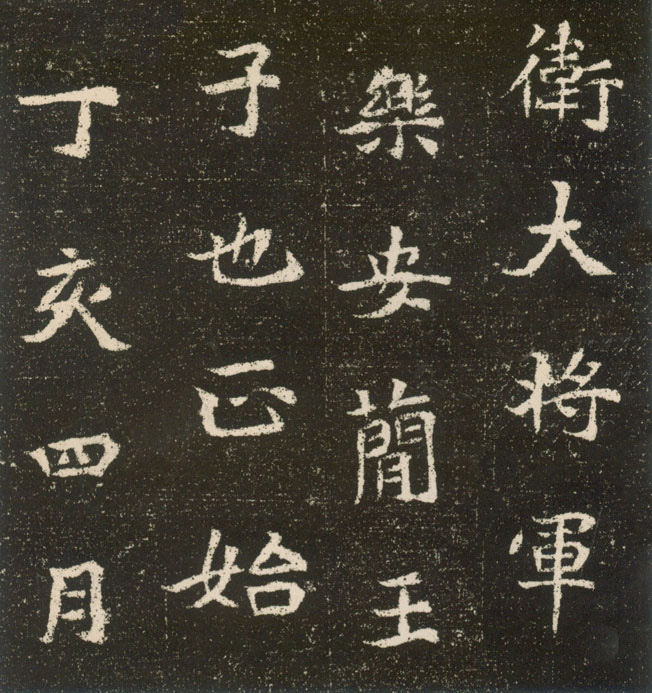 衛大將軍
樂安蕳王
子也正始
丁亥四月